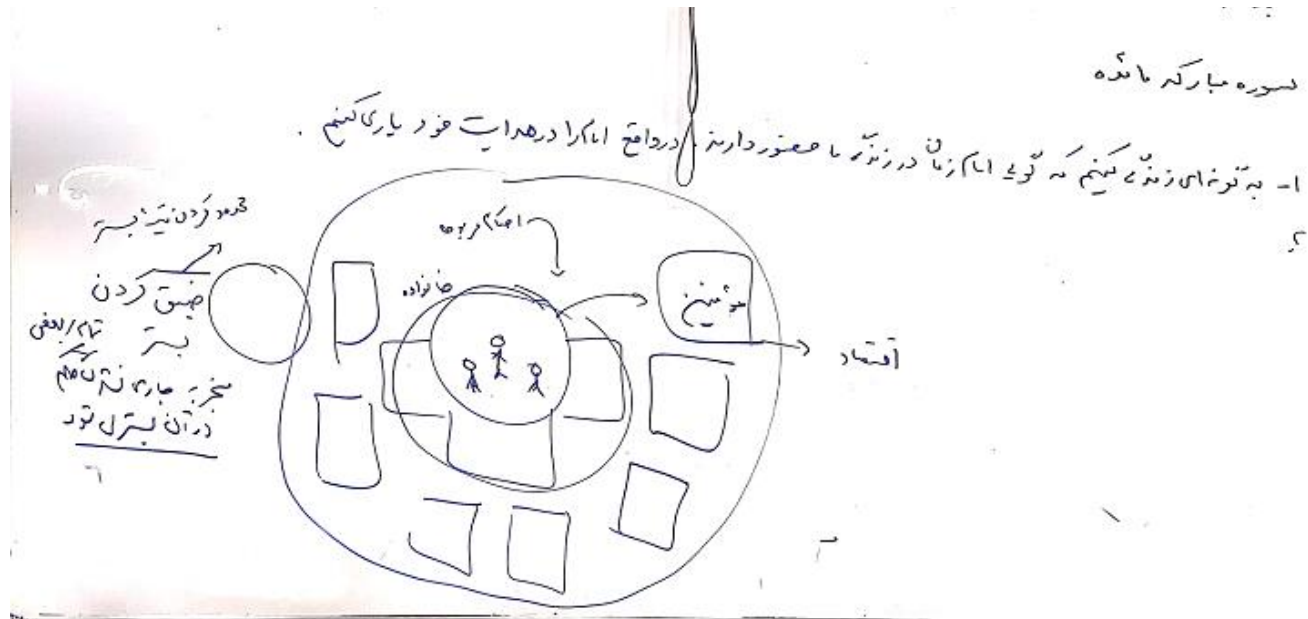 سوره مبارکه مائده
۱- به گونه ای زندگی کنیم که گویی امام زمان در زندگی ما حضور دارند. درواقع امام را در هدایت خود یاری کنیم.
احکام مربوطه
خانواده
مؤمنین
اقتصاد
محدود کردن بستر
ضیق کردن
بستر
منجر به جاری
در آن بستر شود